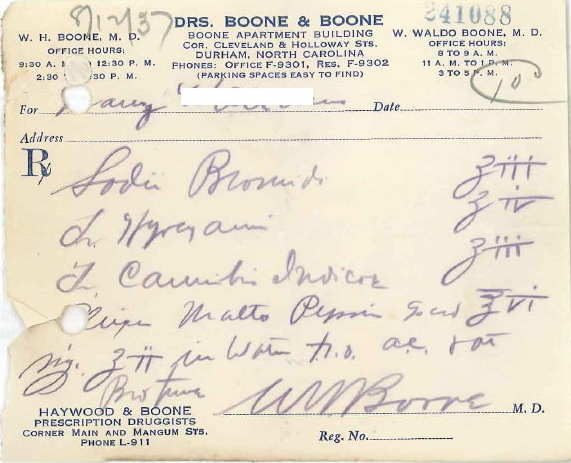 8/12/37
DRS. BOONE & BOONE
BOONE APARTMENT BUILDING
COR. CLEVELAND & HOLLOWAY STS.
DURHAM, NORTH CAROLINA
PHONES: OFFICE F-9301, RES. F-9302
(PARKING SPACES EASY TO FIND)
W. H. BOONE, M. D.
OFFICE HOURS:
9:30 A. M. 12:30 P. M.
2:30 :30 P. M.
241088
W. WALDO BOONE, M. D.
OFFICE HOURS:
8 TO 9 A. M.
11 A. M. TO 1 P. M.
3 TO 5 P. M.
For Date
Address
℞ Sodii Bromidi ʒiii
Tr. Hyoscyami ʒiv
Tr. Cannabis Indicae ʒiii
Elixir Malto Pepsin ℥vi
Sig. ʒii in Water a.c.
W H Boone M. D.
HAYWOOD & BOONE
PRESCRIPTION DRUGGISTS
CORNER MAIN AND MANGUM STS.
PHONE L-911
Reg. No.